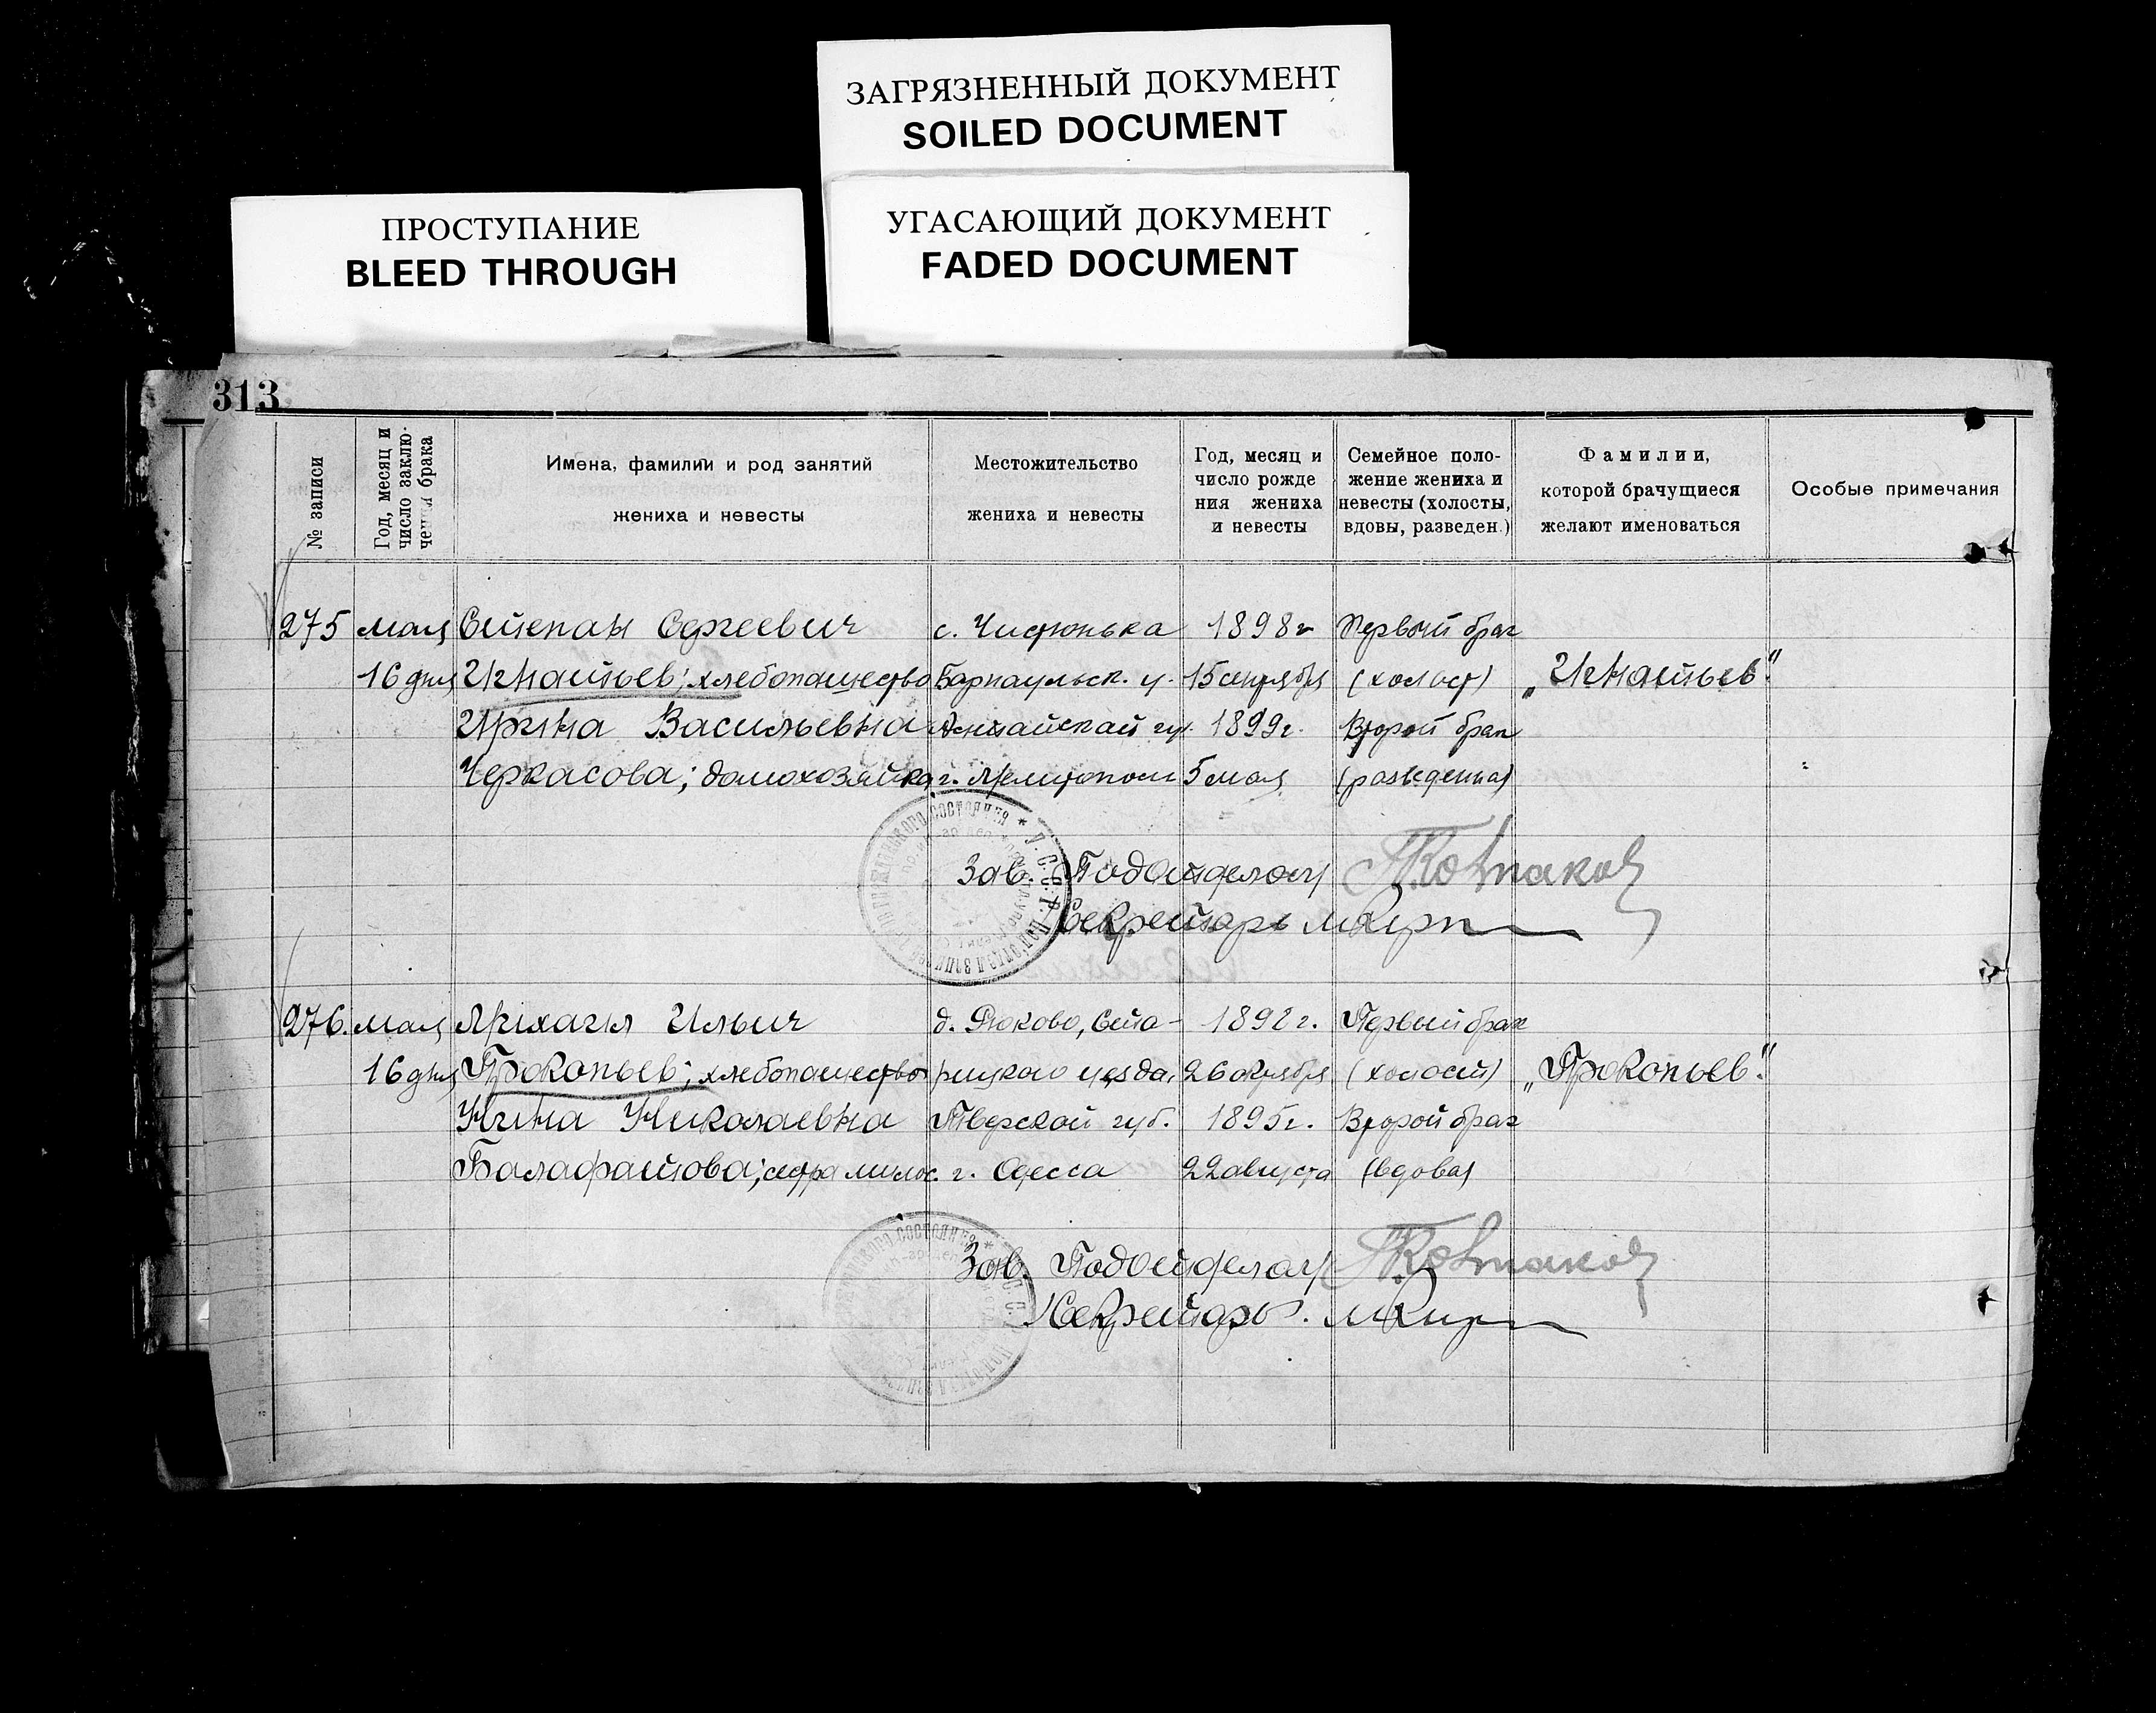 ЗАГРЯЗНЕННЫЙ ДОКУМЕНТ
SOILED DOCUMENT
ПРОСТУПАНИЕ
BLEED THROUGH
УГАСАЮЩИЙ ДОКУМЕНТ
FADED DOCUMENT
313
№ записи
Год, месяц и
число заклю-
чения брака
Имена, фамилии и род занятий
жениха и невесты
Местожительство
жениха и невесты
Год, месяц и
число рожде
ния жениха
и невесты
Семейное поло-
жение жениха и
невесты (холосты,
вдовы, разведен.)
Фамилии,
которой брачущиеся
желают именоваться
Особые примечания
275 мая Степан Сергеевич с. Чистюнька 1898г Первый брак
16 дня Игнатьев; хлебопашество Барнаульск. у. 15 сентября (холост) „Игнатьев".
Ирина Васильевна Алтайской гу. 1899г. Второй брак
Черкасова; домохозяйка г. Мелитополь 5 мая (разведенная)
Зав. Подотделом
Секретарь
276. мая Михаил Ильич д. Рюково, Ста- 1892г. Первый брак
16 дня Прокопьев; хлебопашество рицкого уезда, 26 октября (холост) „Прокопьев".
Нина Николаевна Тверской губ. 1895г. Второй брак
Балафатова; сестра милос. г. Одесса 22 августа (вдова)
Зав. Подотделом
Секретарь.